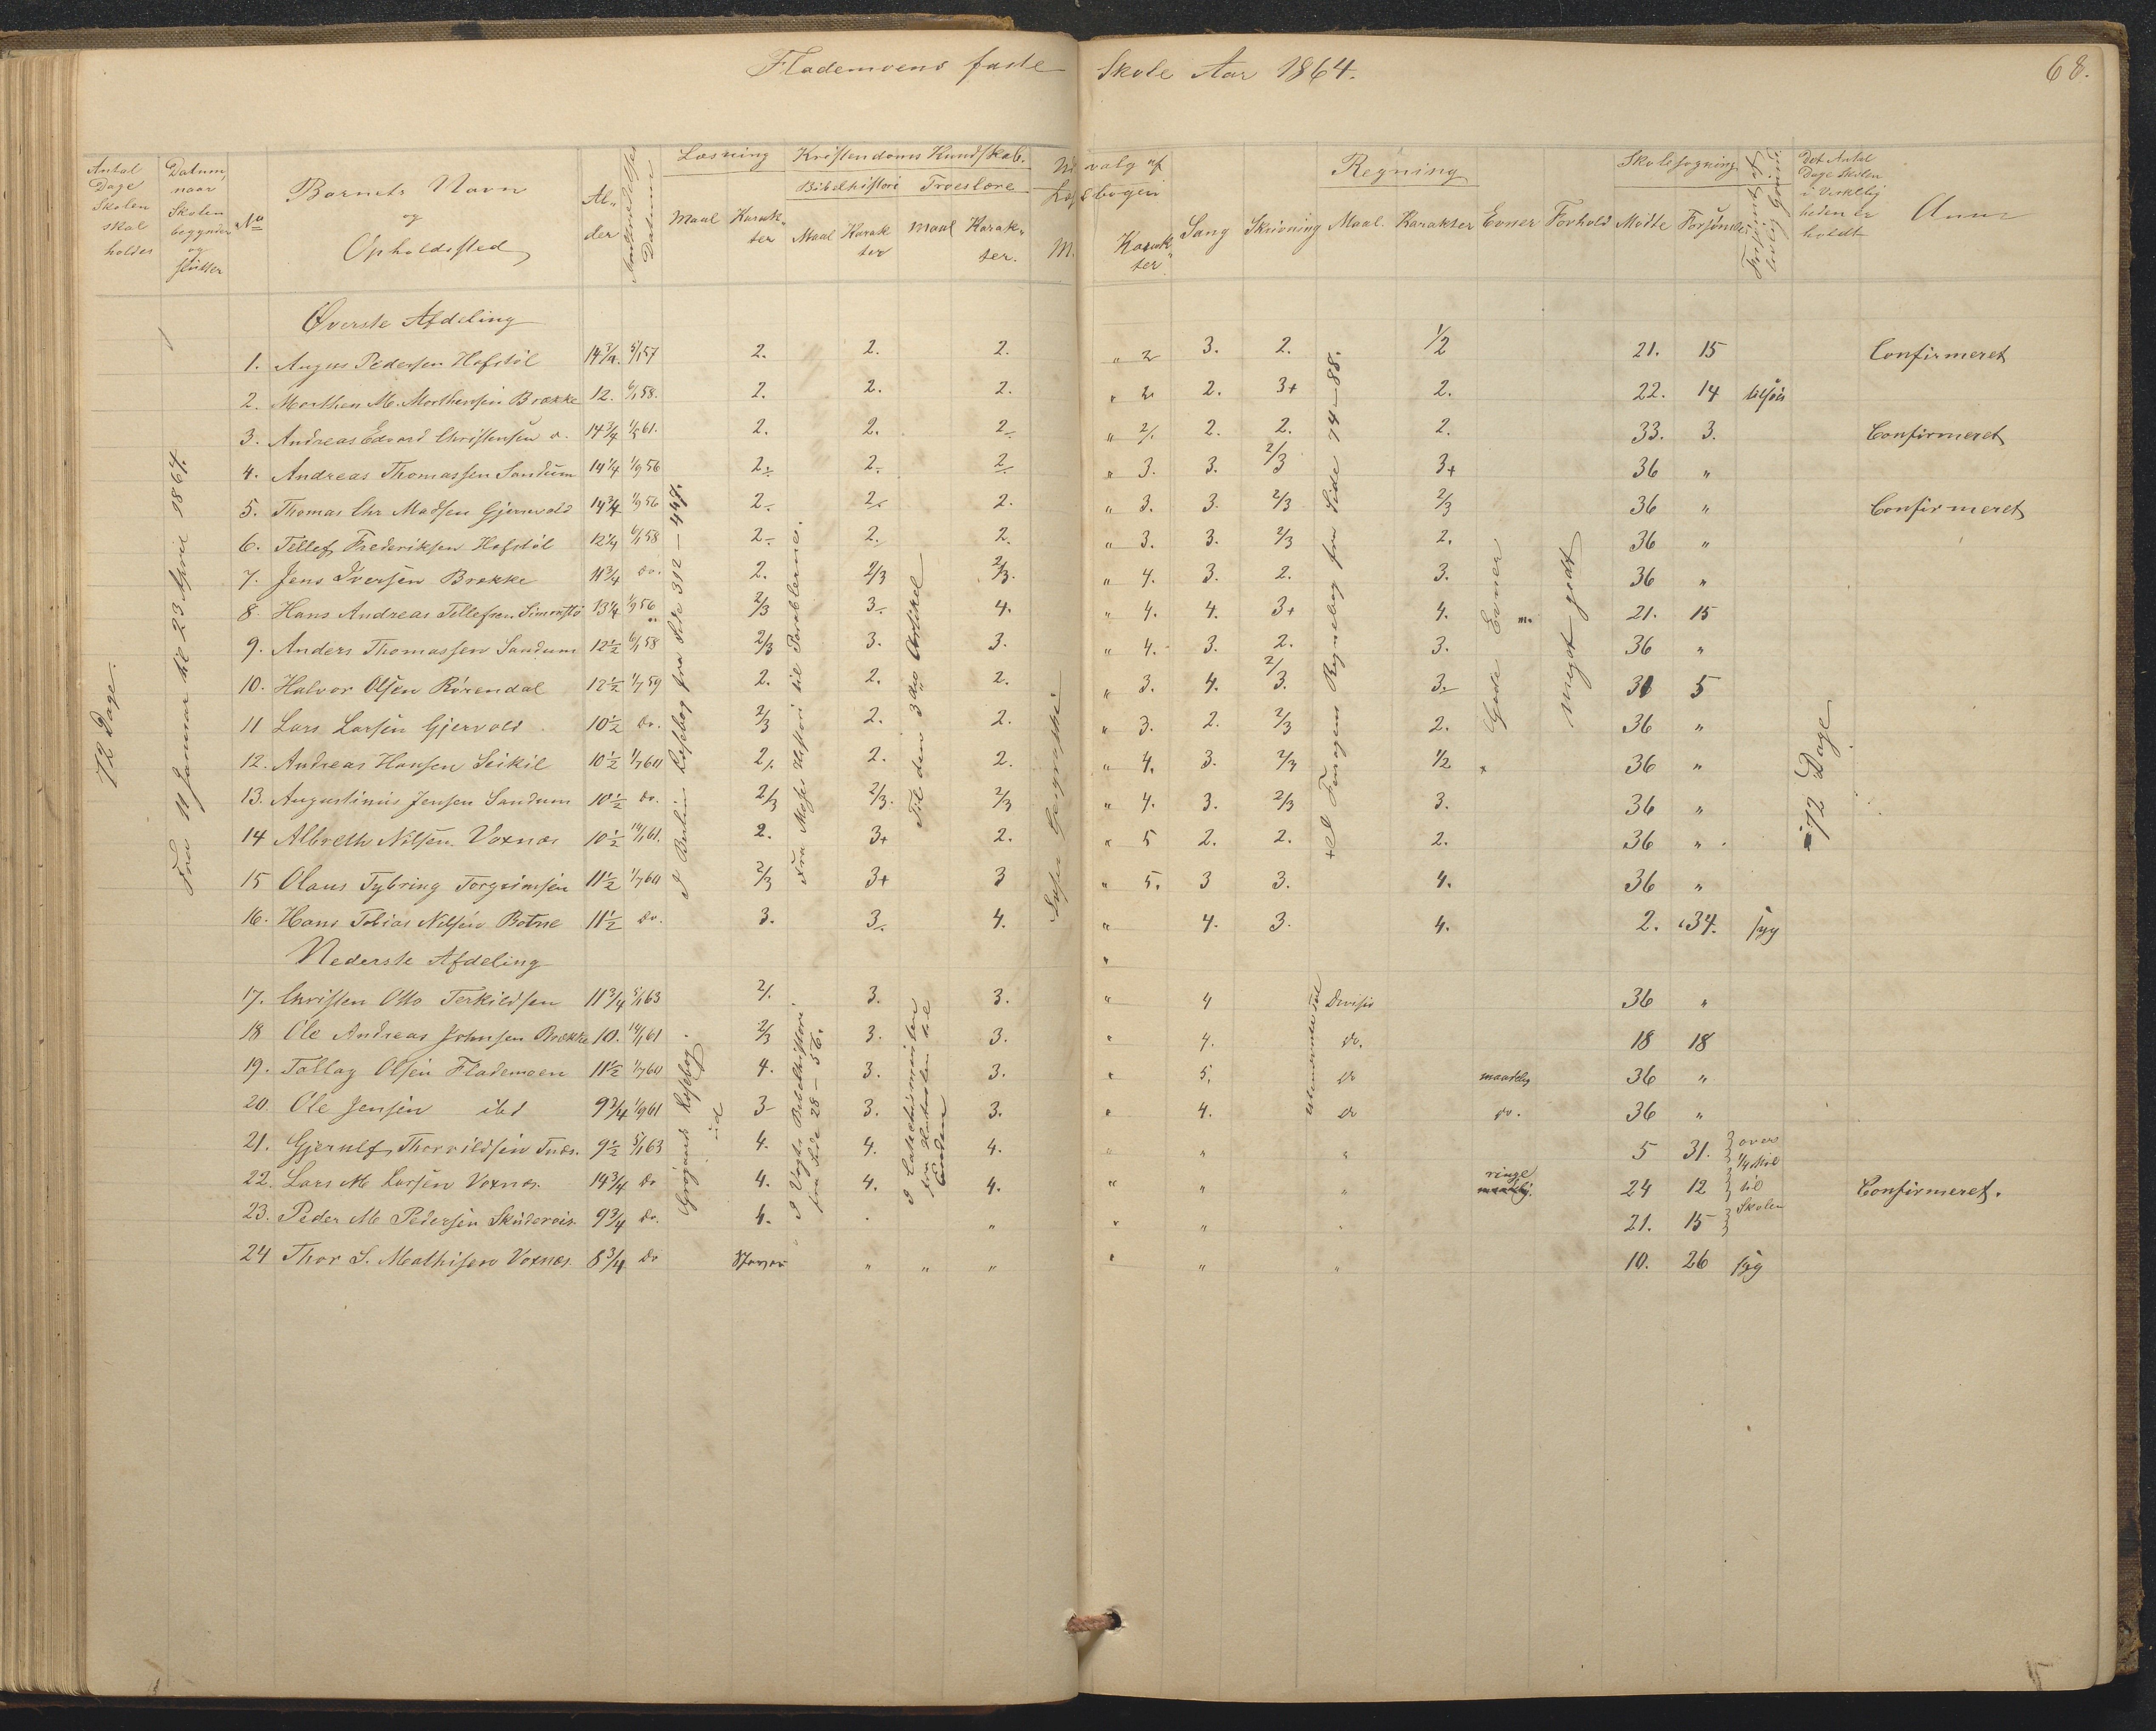 Flademoens faste Skole Aar 1864.
68.
Antal Dage Skolen skal holdes
Datum, naar Skolen begynder og slutter
No
Barnets Navn og Opholdssted
Al-der
Datum
Læsning
Maal Karakter
Kristendoms Kundskab.
Bibelhistori Troeslære
Maal Karakter Maal Karakter.
Udvalg af Læsebogen
M. Karakter
Sang Skrivning
Regning
Maal. Karakter
Evner Forhold
Skolesøgning
Mødte Forsømte
Det Antal Dage Skolen i Virkelig heden er holdt
Anm
72 Dage.
Fra 11 Januar til 23 April 1864.
I Berlin Læsebog fra Side 312 – 447.
Fra Mose Histori til Parablerne.
Til den 3die Artikel
til Tangens Regnebog fra Side 74–88.
Gode Evner
meget godt
72 Dage
Øverste Afdeling
1. Augus Pedersen Hofstøl 14 3/4. 5/1 57 2. 2. 2. " 2 3. 2. 1/2 21. 15 Confirmeret
2. Morthen M. Morthensen Brække 12. 6/1 58. 2. 2. 2. " 2 2. 3+ 2. 22. 14
3. Andreas Edvard Christensen 14 3/4 61. 2. 2. 2 " 2/. 2. 2. 2. 33. 3. Confirmeret
4. Andreas Thomassen Sandum 14 1/4 1/9 56 2 2 2 " 3. 3. 2/3 3+ 36 "
5. Thomas Chr Madsen Gjervold 14 3/4 1/9 56 2 2 2. " 3. 3. 2/3 2/3 36 " Confirmeret
6. Tellef Frederiksen Hofstøl 12 1/4 6/1 58 2 2. 2. " 3. 3. 2/3 2. 36 "
7. Jens Iversen Brekke 11 3/4 do. 2. 2/3 2/3. " 4. 3. 2. 3. 36 "
8. Hans Andreas Tellefsen Simonstø 13 1/4 1/9 56 2/3 3 4. " 4. 4. 3+ 4. 21. 15
9. Anders Thomassen Sandum 12 1/2 6/1 58 2/3 3. 3. " 4. 3. 2. 3. 36 "
10. Halvor Olsen Rørendal 12 1/2 1/7 59 2. 2. 2. " 3. 4. 2/3. 3 31 5
11 Lars Larsen Gjervold 10 1/2 do. 2/3 2. 2. " 3. 2. 2/3 2. 36 "
12. Andreas Hansen Seikil 10 1/2 1/7 60 2/. 2. 2. " 4. 3. 2/3 1/2 36 "
13. Augustinus Jensen Sandum 10 1/2 do. 2/3 2/3. 2/3 " 4. 3. 2/3 3. 36 "
14 Albreth Nilsen Voxnæs 10 1/2 14/1 61. 2. 3+ 2. " 5 2. 2. 2. 36 "
15 Olaus Tybring Torgrimsen 11 1/2 1/7 60 2/3 3+ 3 " 5. 3 3. 4. 36 "
16. Hans Tobias Nilsen Botne 11 1/2 do. 3. 3 4. " 4. 3. 4. 2. 34. syg
Nederste Afdeling
17. Christen Otto Terkildsen 11 3/4 5/1 63 2/. 3. 3. " 4 Divisio 36 "
18 Ole Andreas Johnsen Brække 10. 14/1 61 2/3 3. 3. " 4. do. 18 18
19. Tallag Olsen Flademoen 11 1/2 1/7 60 4. 3. 3. " 5. do maadelig 36 "
20. Ole Jensen ibd 9 3/4 1/9 61 3 3. 3. " 4. do do. 36 "
21. Gjerulf Thorvildsen 9 1/2 5/1 63 4. 4. 4. " " " 5 31. over 1/4 Mil til Skolen
22. Lars M Larsen Voxnæs. 14 3/4 do 4. 4. 4. " " " ringe 24 12 Confirmeret.
23. Peder M Pedersen 9 3/4 do. 4. " " " 21. 15
24 Thor S. Mathisen Voxnæs 8 3/4 do " " " " " " 10. 26 syg
Grøgaards Læsebog ud
I Vogts Bibelhistori fra Side 28 – 56.
I Catechismisten fra Husbordet til Enden